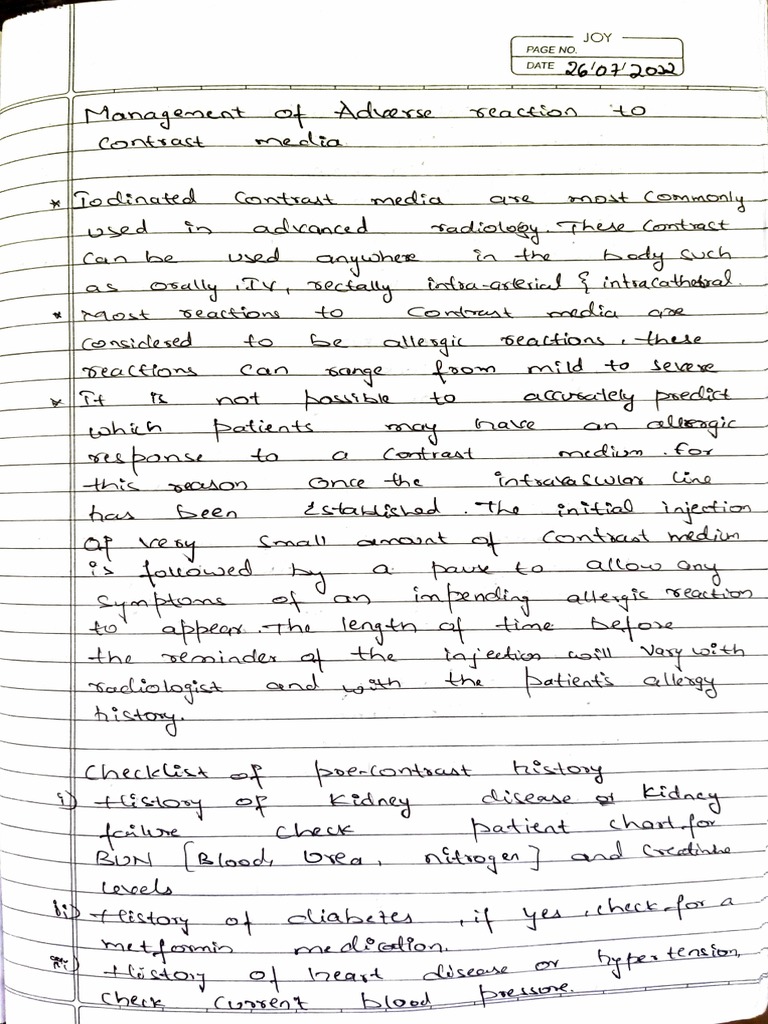 JOY
PAGE NO.
DATE 26/07/2022
Management of Adverse reaction to
contrast media
* Iodinated contrast media are most commonly
used in advanced radiology. These contrast
can be used anywhere in the body such
as orally, IV, rectally intra-arterial & intracathetral.
* Most reactions to contrast media are
considered to be allergic reactions, these
reactions can range from mild to severe
* It is not possible to accurately predict
which patients may have an allergic
response to a contrast medium. for
this reason once the intravascular line
has been established. The initial injection
of very small amount of contrast medium
is followed by a pause to allow any
symptoms of an impending allergic reaction
to appear. The length of time before
the reminder of the injection will vary with
radiologist and with the patient's allergy
history.
Checklist of pre-contrast history
i) History of kidney disease or kidney
failure check patient chart for
BUN [Blood, Urea, nitrogen] and
levels
ii) History of diabetes, if yes, check for a
metformin medication.
iii) History of heart disease or hypertension,
check current blood pressure.